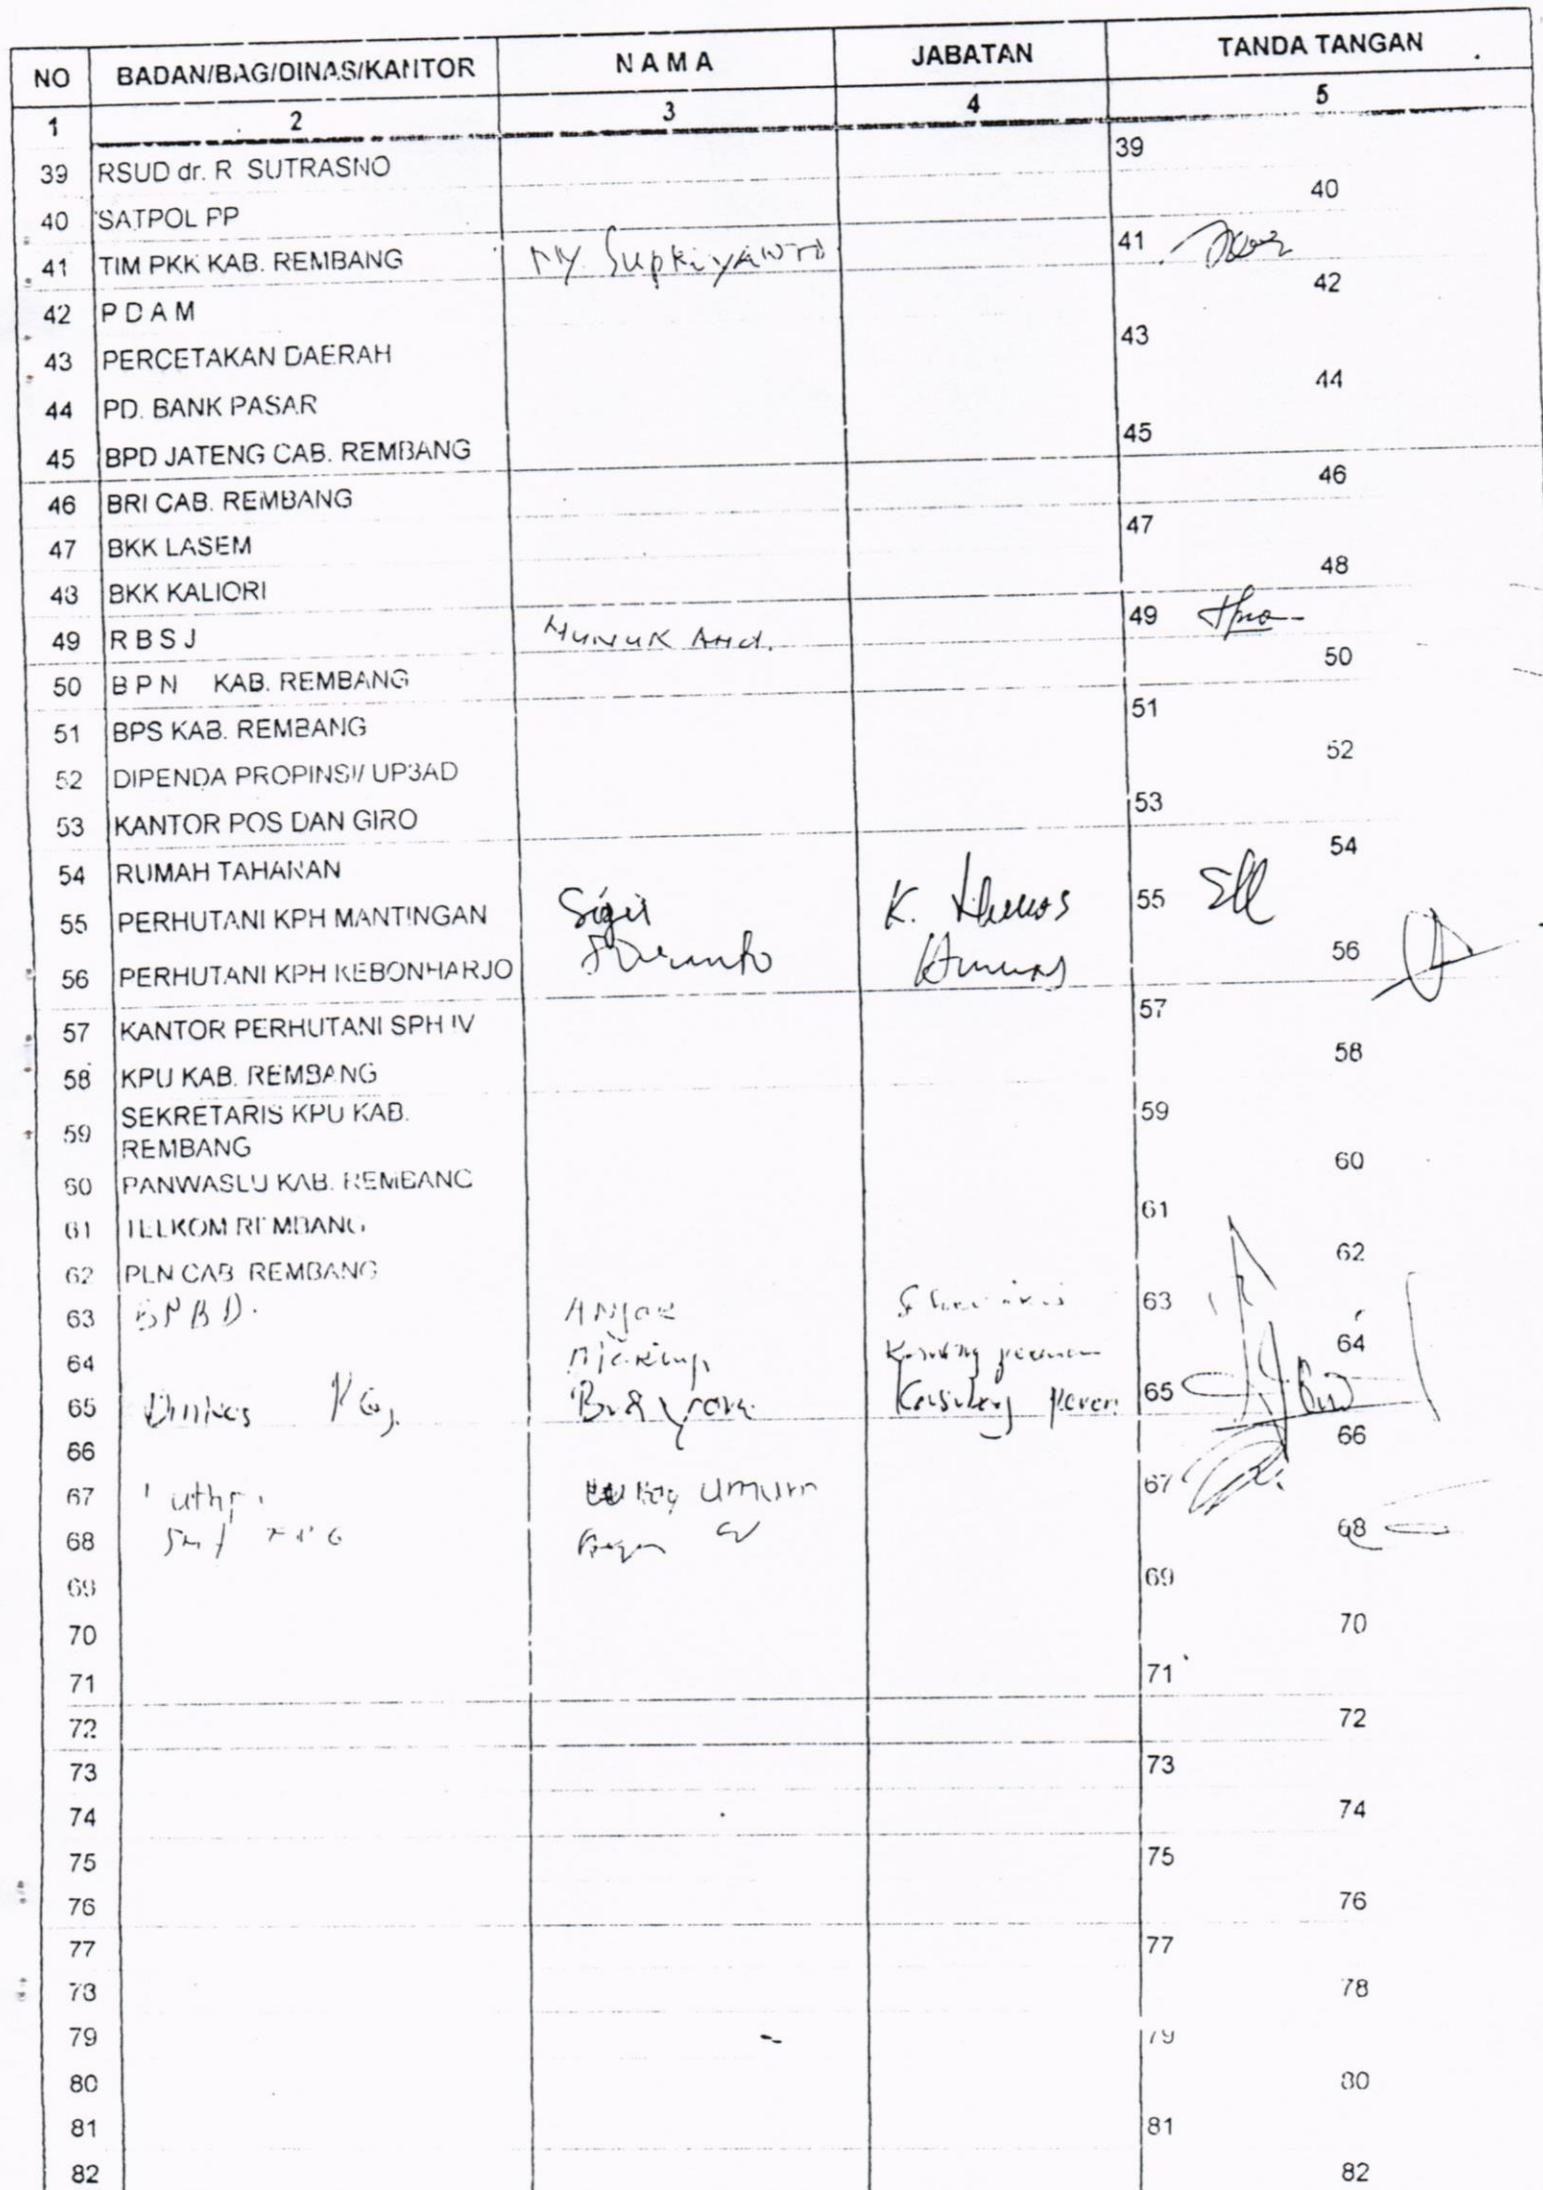 NO BADAN/BAG/DINAS/KANTOR NAMA JABATAN TANDA TANGAN
1 2 3 4 5
39 RSUD dr. R SUTRASNO 39
40 SATPOL PP 40
41 TIM PKK KAB. REMBANG NY. Supriyanto 41
42 PDAM 42
43 PERCETAKAN DAERAH 43
44 PD. BANK PASAR 44
45 BPD JATENG CAB. REMBANG 45
46 BRI CAB. REMBANG 46
47 BKK LASEM 47
48 BKK KALIORI 48
49 RBSJ 49
50 BPN KAB. REMBANG 50
51 BPS KAB. REMBANG 51
52 DIPENDA PROPINSI/ UP3AD 52
53 KANTOR POS DAN GIRO 53
54 RUMAH TAHANAN 54
55 PERHUTANI KPH MANTINGAN Sigit K. Humas 55
56 PERHUTANI KPH KEBONHARJO Humas 56
57 KANTOR PERHUTANI SPH IV 57
58 KPU KAB. REMBANG 58
59 SEKRETARIS KPU KAB. 59
REMBANG
60 PANWASLU KAB. REMBANG 60
61 TELKOM REMBANG 61
62 PLN CAB REMBANG 62
63 BPBD. 63
64 64
65 65
66 66
67 umum 67
68 68
69 69
70 70
71 71
72 72
73 73
74 74
75 75
76 76
77 77
78 78
79 79
80 80
81 81
82 82